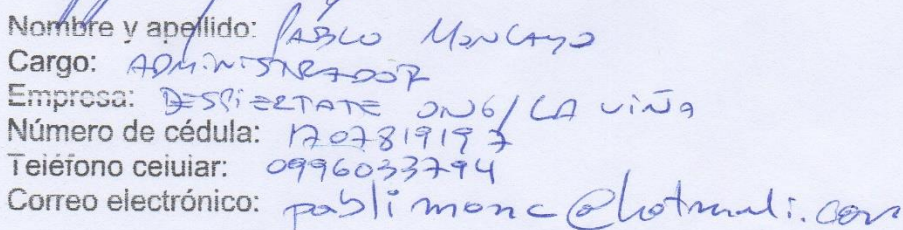 Nombre y apellido: PABLO MONCAYO
Cargo: ADMINISTRADOR
Empresa: DESPIERTATE ONG/LA VIÑA
Número de cédula: 1707819197
Teléfono celular: 0996033794
Correo electrónico: pablimonc@hotmali.com